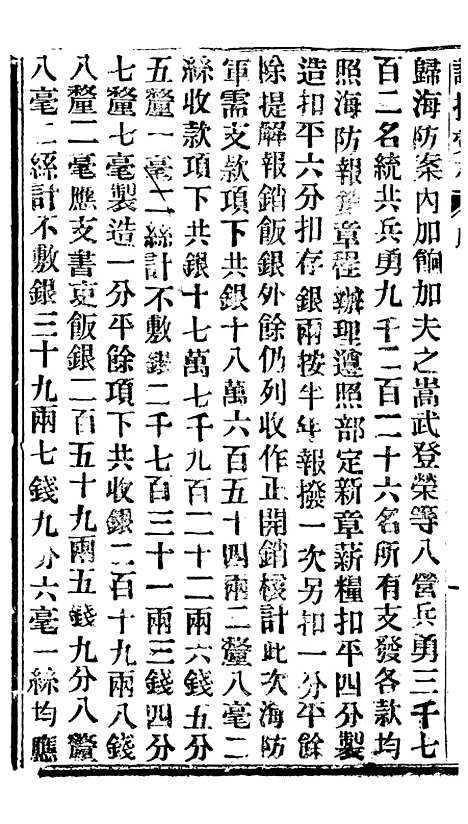 歸海防案內加餉加夫之嵩武登榮等八營兵勇三千七
百二名統共兵勇九千二百二十六名所有支發各款均
照海防報銷章程辦理遵照部定新章薪糧扣平四分製
造扣平六分扣存銀兩按半年報撥一次另扣一分平餘
除提解報銷飯銀外餘仍列收作正開銷核計此次海防
軍需支款項下共銀十八萬六百五十四兩二釐八毫二
絲收款項下共銀十七萬七千九百二十二兩六錢五分
五釐一毫二絲計不敷銀二千七百三十一兩三錢四分
七釐七毫製造一分平餘項下共收銀二百十九兩八錢
八釐二毫應支書吏飯銀二百五十九兩五錢九分八釐
八毫二絲計不敷銀三十九兩七錢九分六毫一絲均應